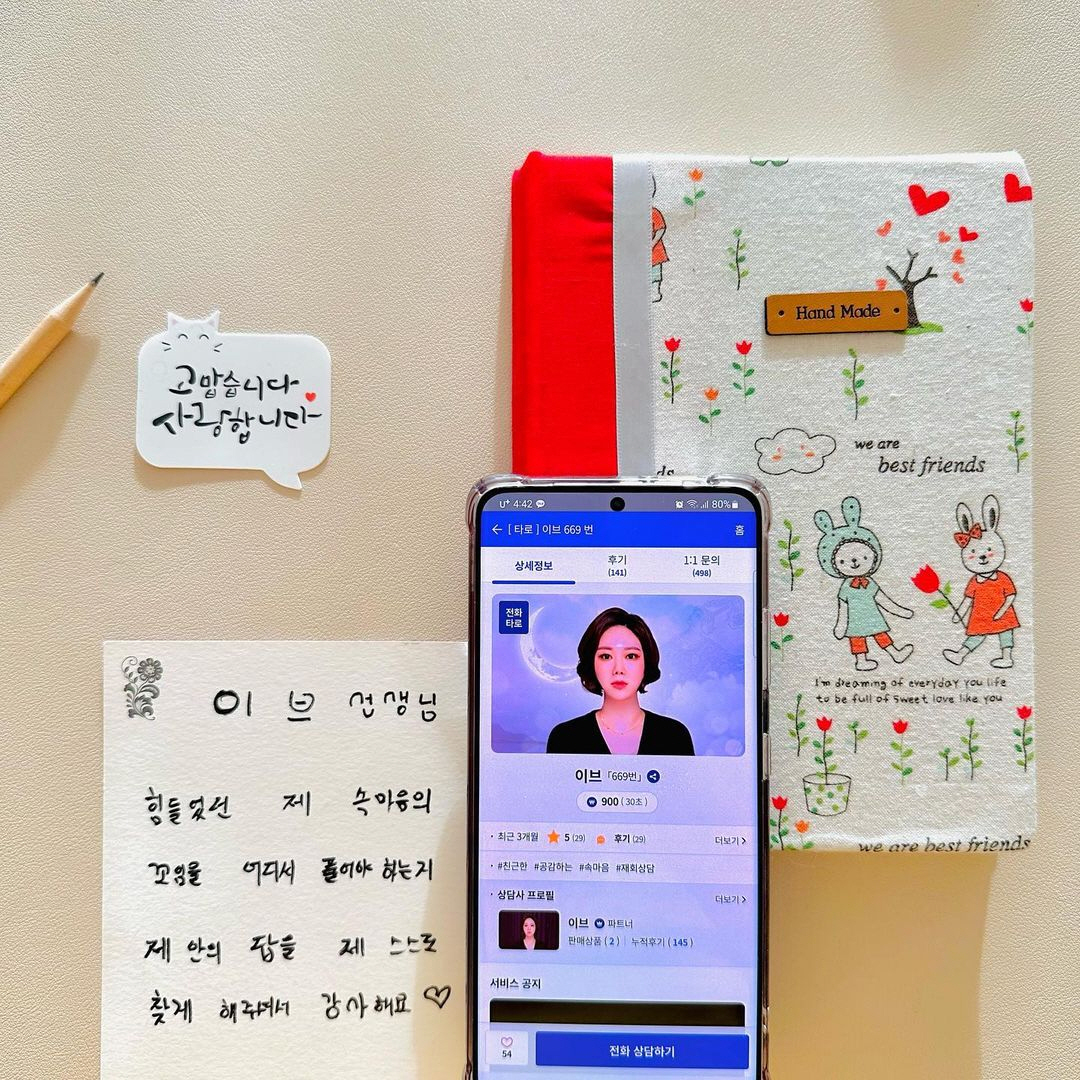 고맙습니다
사랑합니다
Hand Made
we are
best friends
ds
I'm dreaming of everyday you life
to be full of sweet love like you
we are best friends
U+ 4:42
80%
[ 타로 ] 이브 669 번
홈
상세정보
후기
(141)
1:1 문의
(498)
전화
타로
이브 「669번」
900 ( 30초 )
최근 3개월 5 (29) 후기 (29) 더보기
#친근한 #공감하는 #속마음 #재회상담
상담사 프로필 더보기
이브 파트너
판매상품 ( 2 ) | 누적후기 ( 145 )
서비스 공지
54
전화 상담하기
이브 선생님
힘들었던 제 속마음의
꼬임을 어디서 풀어야 하는지
제 안의 답을 제 스스로
찾게 해주셔서 감사해요